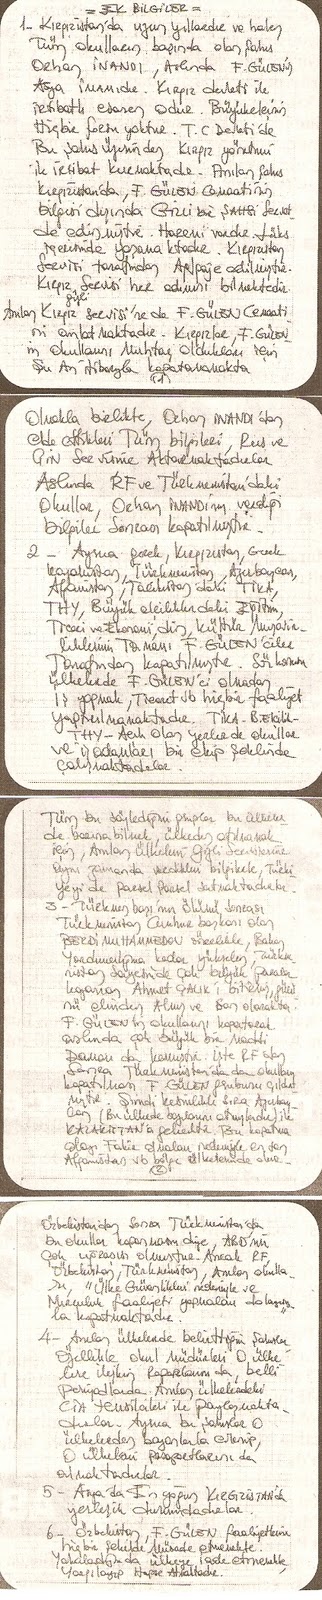 = EK BİLGİLER =
1- Kırgızistan'da uzun yıllardır ve halen
Tüm okulların başında olan şahıs
Orhan İNANDI, Aslında F.GÜLEN'in
Asya İMAMIDIR. Kırgız devleti ile
irtibatlı esasen odur. Büyükelçinin
Hiçbir forsu yoktur. T.C Devleti de
Bu şahıs üzerinden Kırgız yönetimi
ile irtibat kurmaktadır. Anılan şahıs
Kırgızistanda, F.GÜLEN Cemaatinin
bilgisi dışında Gizli bir ŞAHSİ Servet
de edinmiştir. Haremi vardır. Lüks
içerisinde yaşamaktadır. Kırgızistan
Servisi tarafından Angaje edilmiştir.
Kırgız Servisi her adımını bilmektedir
gizli
Anılan Kırgız Servisi'ne de F.GÜLEN Cemaati-
ni anlatmaktadır. Kırgızlar, F.GÜLEN-
in okullarına Muhtaç oldukları için
Şu An itibarıyla kapatmamakta
1
Olmakla birlikte, Orhan İNANDI'dan
elde ettikleri Tüm bilgileri, Rus ve
ÇİN Servisine Aktarmaktadırlar
Aslında RF ve Türkmenistan'daki
Okullar, Orhan İNANDI'nın verdiği
bilgiler sonrası kapatılmıştır.
2- Ayrıca gerek, Kırgızistan, Gerek
Kazakistan, Türkmenistan, Azerbaycan,
Afganistan, Tacikistan'daki TİKA,
THY, Büyük elçiliklerdeki Eğitim,
Ticari ve Ekonomi, din, Kültür Müşavir-
liklerinin TAMAMI F.GÜLEN'ciler
Tarafından kapatılmıştır.
ülkelerde F.GÜLEN'ci olmadan
İş yapmak, Ticaret vb hiçbir faaliyet
yaptırılmamaktadır. TİKA-B.Elçilik-
THY- Açık olan yerlerde okullar
ve iş adamları bir ekip şeklinde
çalışmaktadırlar.
Tüm bu söylediğim gruplar bu ülkeler-
de barınabilmek, ülkeden atılmamak
için, Anılan ülkelerin Gizli Servislerine
aynı zamanda verdikleri bilgilerle, Türki-
ye'yi de parsel parsel satmaktadırlar.
3- Türkmenbaşı'nın ölümü sonrası
Türkmenistan Cumhurbaşkanı olan
BERDİ MUHAMMEDOV
kadar yükselen, Türkme-
nistan sayesinde çok büyük paralar
kazanan Ahmet ÇALIK'ı bitirmiş, gücü-
nü elinden Almış ve
F.GÜLEN'in okullarını kapatarak
aslında çok büyük bir Maddi
İşte RF'den
Sonra Türkmenistan'da da okulların
kapatılması F.GÜLEN grubunu çıldırt-
mıştır. Şimdi kesinlikle Sıra Azerbay-
can (Bu ülkede başlarını almışlardır) ile
KAZAKİSTAN'a gelecektir. Bu kapatma
olayı Fakir olmaları nedeniyle en son
Afganistan vb bölge ülkelerinde olur.
2
Özbekistan'dan Sonra Türkmenistan'da
bu okullar kapanmasın diye, ABD'nin
çok uğraşısı olmuştur. Ancak RF,
Özbekistan, Türkmenistan, Anılan okulla-
rı, "Ülke Güvenlikleri nedeniyle ve
faaliyeti yapmaları dolayısıy-
la kapatmaktadır.
4- Anılan ülkelerde belirttiğim şahıslar
Özellikle okul Müdürleri O ülke-
lere ilişkin Raporlarını da, belli
periyotlarda. Anılan ülkelerdeki
CIA temsilcileri ile paylaşmakta-
dırlar. Ayrıca bu şahıslar O
ülkelerden bayanlarla evlenip,
O ülkelerin pasaportlarını da
almaktadırlar.
5- Asya'da En yoğun KIRGIZİSTAN'da
yerleşik durumdadırlar.
6- Özbekistan, F.GÜLEN faaliyetlerine
hiçbir şekilde Müsade etmemekte.
Yakaladığında ülkeye iade etmemekte,
Yargılayıp Hapse Atmaktadır.